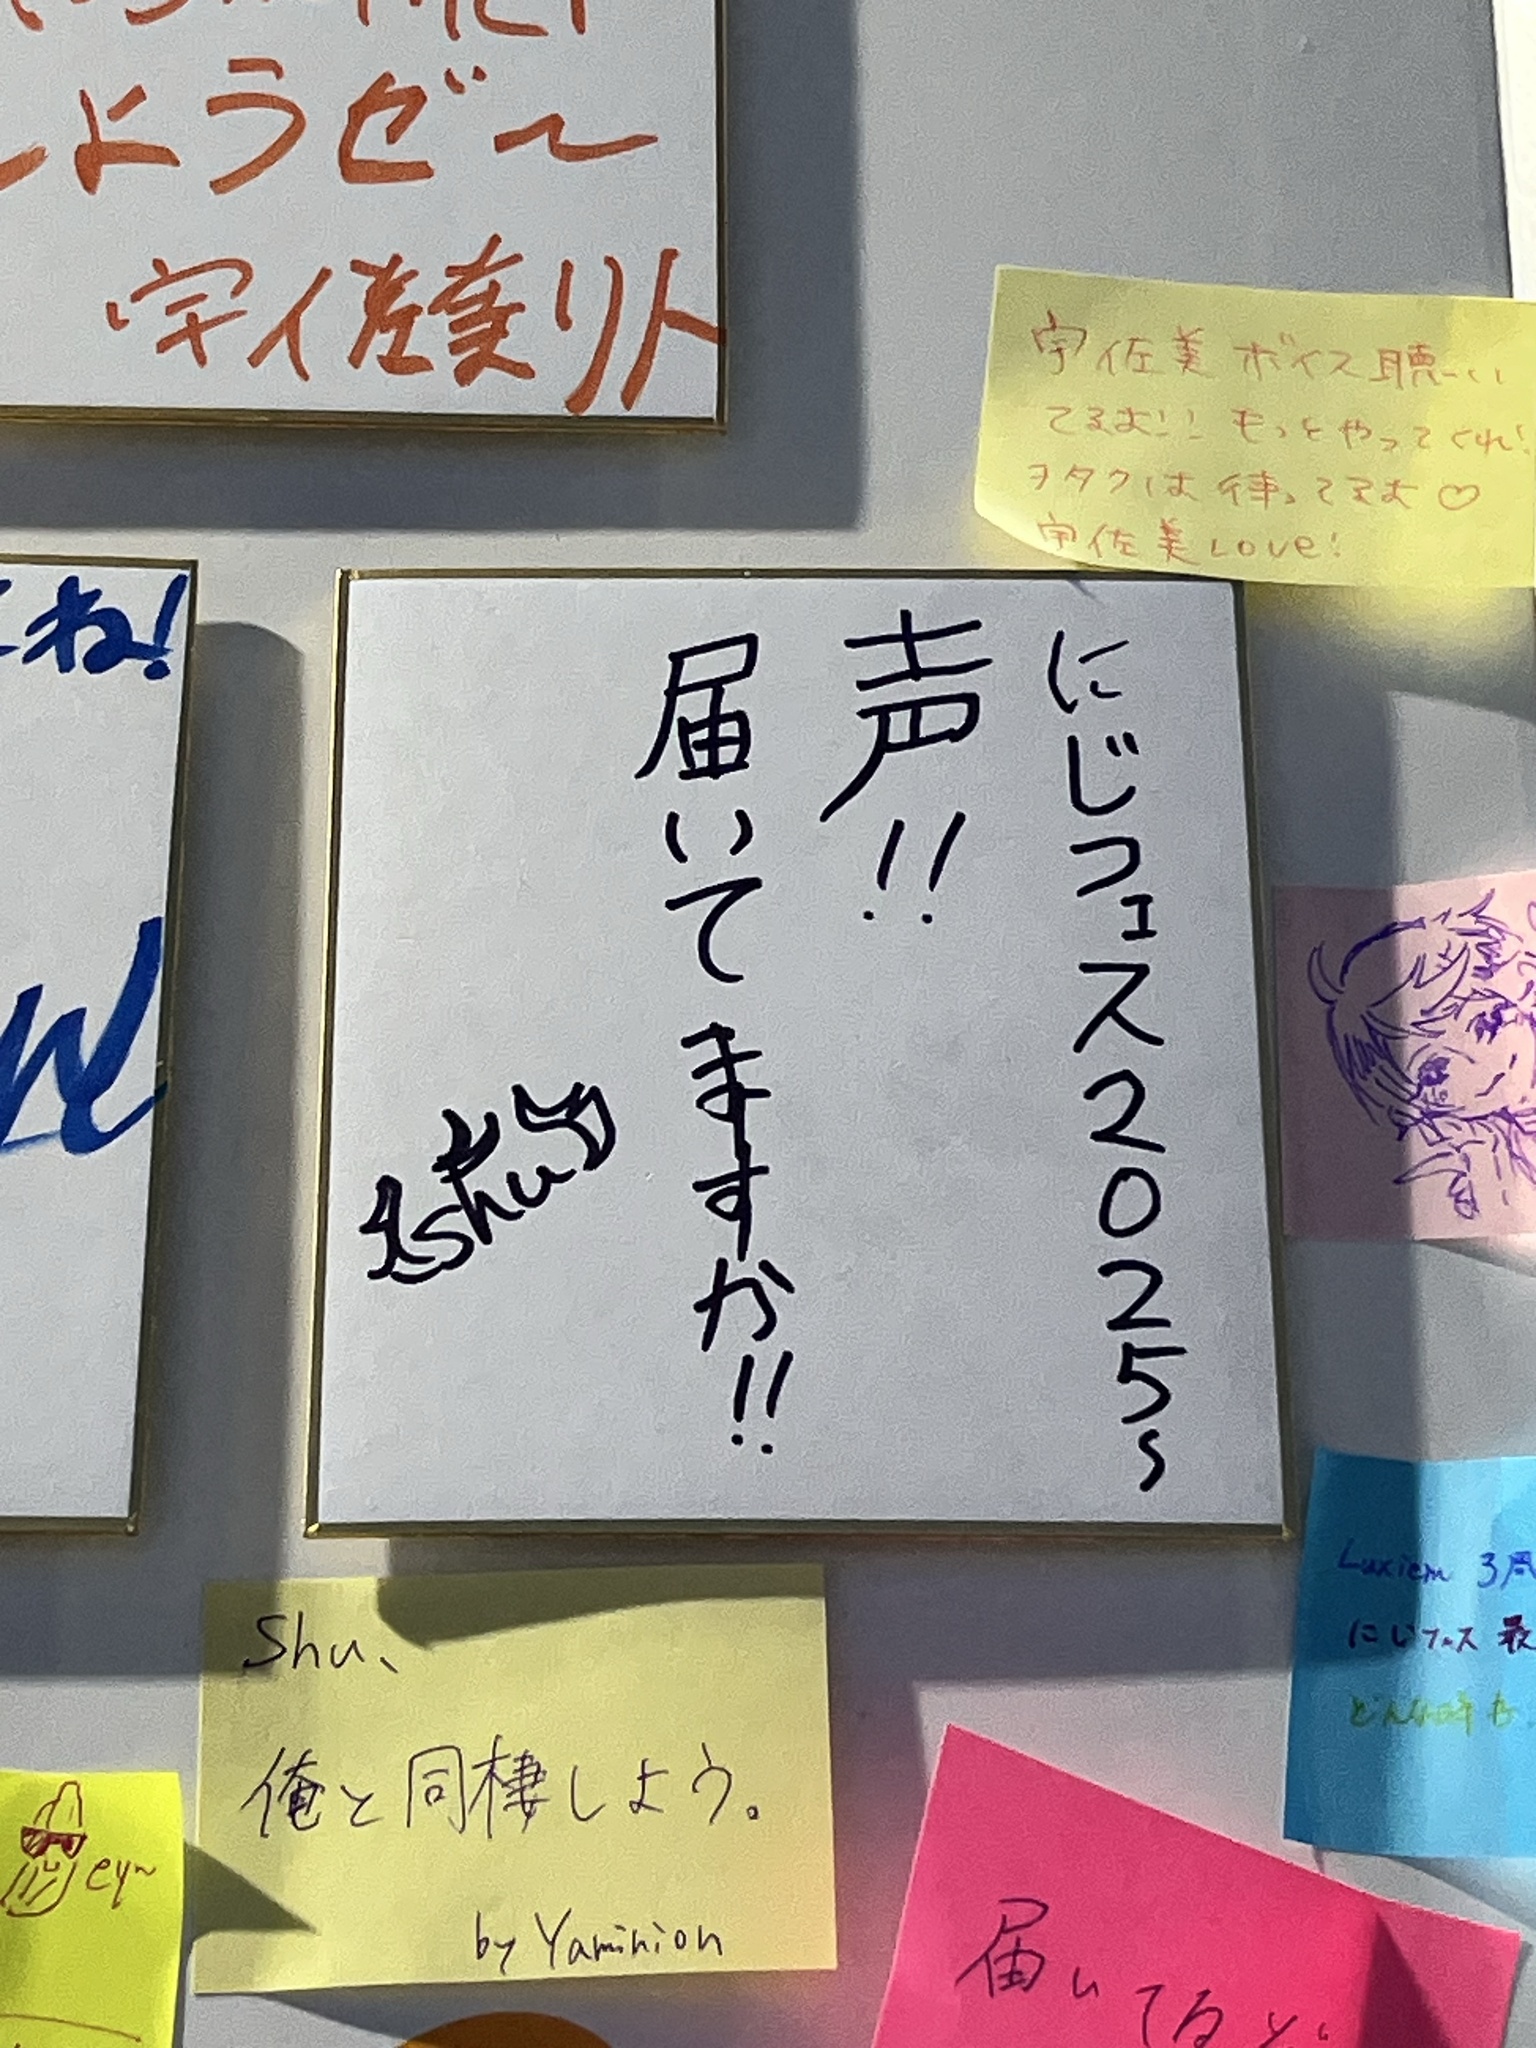 しようぜ〜
宇佐美リト
宇佐美ボイス聴い
てるむ!! もっとやってくれ!
ヲタクは待ってるむ♡
宇佐美Love!
ね!
にじフェス2025〜
声!!
届いてますか!!
shu
Shu、
俺と同棲しよう。
by Yaminion
Luxiem 3周
にじフェス 最
どんな時も
ey~
届いてるよ。